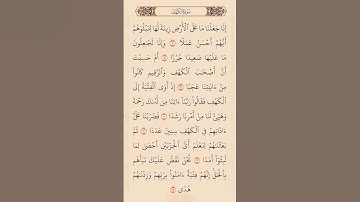 سُورَةُ الكَهْفِ
إِنَّا جَعَلْنَا مَا عَلَى ٱلْأَرْضِ زِينَةً لَّهَا لِنَبْلُوَهُمْ
أَيُّهُمْ أَحْسَنُ عَمَلًا ۝ وَإِنَّا لَجَٰعِلُونَ
مَا عَلَيْهَا صَعِيدًا جُرُزًا ۝ أَمْ حَسِبْتَ
أَنَّ أَصْحَٰبَ ٱلْكَهْفِ وَٱلرَّقِيمِ كَانُوا۟
مِنْ ءَايَٰتِنَا عَجَبًا ۝ إِذْ أَوَى ٱلْفِتْيَةُ إِلَى
ٱلْكَهْفِ فَقَالُوا۟ رَبَّنَآ ءَاتِنَا مِن لَّدُنكَ رَحْمَةً
وَهَيِّئْ لَنَا مِنْ أَمْرِنَا رَشَدًا ۝ فَضَرَبْنَا عَلَىٰٓ
ءَاذَانِهِمْ فِى ٱلْكَهْفِ سِنِينَ عَدَدًا ۝ ثُمَّ
بَعَثْنَٰهُمْ لِنَعْلَمَ أَىُّ ٱلْحِزْبَيْنِ أَحْصَىٰ لِمَا
لَبِثُوٓا۟ أَمَدًا ۝ نَّحْنُ نَقُصُّ عَلَيْكَ نَبَأَهُم
بِٱلْحَقِّ إِنَّهُمْ فِتْيَةٌ ءَامَنُوا۟ بِرَبِّهِمْ وَزِدْنَٰهُمْ
هُدًى ۝